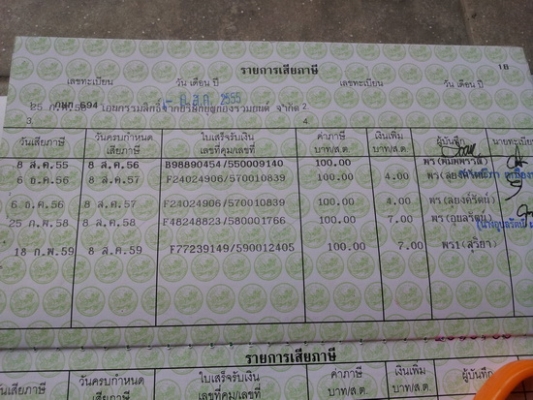 18
รายการเสียภาษี
เลขทะเบียน วัน เดือน ปี เลขทะเบียน วัน เดือน ปี
694 2555 2
3. 4.
วันเสียภาษี วันครบกำหนดเสียภาษี ใบเสร็จรับเงินเลขที่คุม/เลขที่ ค่าภาษีบาท/ส.ต. เงินเพิ่มบาท/ส.ต. ผู้บันทึก นายทะเบียน
8 ส.ค.55 8 ส.ค.56 B98890454/550009140 100.00 พร
6 ธ.ค.56 8 ส.ค.57 F24024906/570010839 100.00 4.00 พร
6 ธ.ค.56 8 ส.ค.57 F24024906/570010839 100.00 4.00 พร
25 ก.พ.58 8 ส.ค.58 F48248823/580001766 100.00 7.00 พร
18 ก.พ.59 8 ส.ค.59 F77239149/590012405 100.00 7.00 พร1(สุริยา)
รายการเสียภาษี
วันเสียภาษี วันครบกำหนดเสียภาษี ใบเสร็จรับเงินเลขที่คุม/เลขที่ ค่าภาษีบาท/ส.ต. เงินเพิ่มบาท/ส.ต. ผู้บันทึก